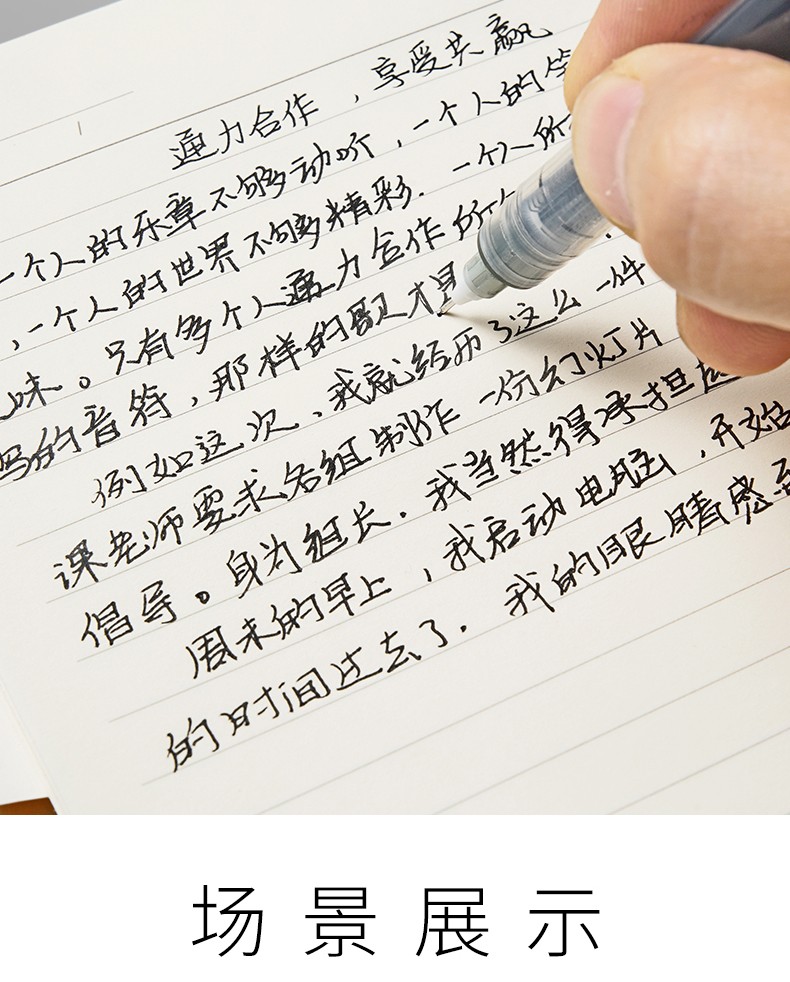 通力合作，享受共赢
一个人的乐章不够动听，一个人的
，一个人的世界不够精彩．一个人所
味。只有多个人通力合作
的音符，那样的歌才是
例如这次，我就经历了这么一件
课老师要求各组制作一份幻灯片
倡导。身为组长．我当然得承担
周末的早上，我启动电脑，开始
的时间过去了．我的眼睛感到
场景展示